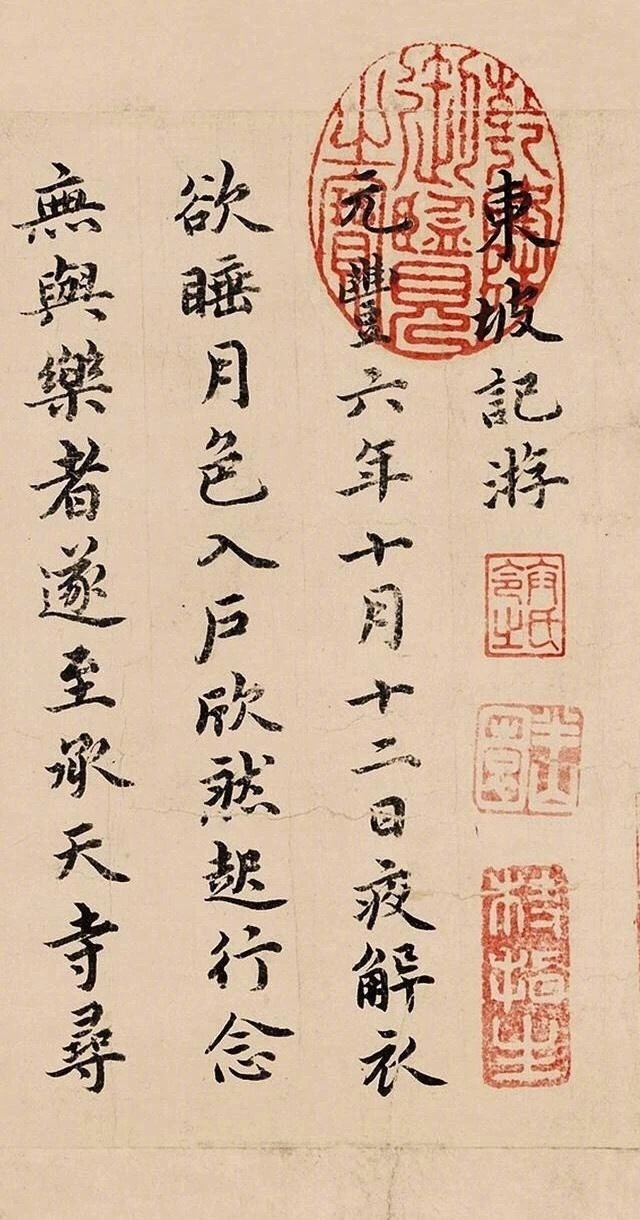 東坡記游
元豐六年十月十二日夜解衣
欲睡月色入戶欣然起行念
無與樂者遂至承天寺尋